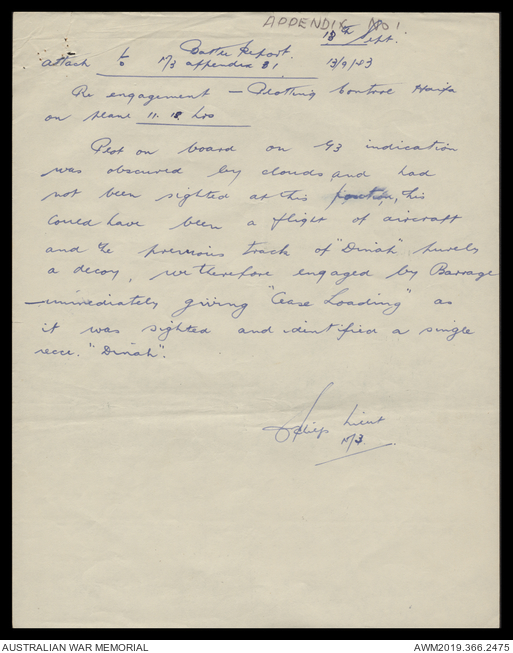 APPENDIX NO 1
13th Sept.
Battle Report
attach to M/3 appendix B1. 13/9/43
Re engagement – Plotting Control
on plane 11.18 hrs
Plot on board on G3 indication
was obscured by clouds and had
not been sighted at this position, this
could have been a flight of aircraft
and the previous track of "Dinah" purely
a decoy, we therefore engaged by Barrage
– immediately giving "Cease Loading" as
it was sighted and identified a single
recce. "Dinah".
Lieut
M/3.
AUSTRALIAN WAR MEMORIAL
AWM2019.366.2475